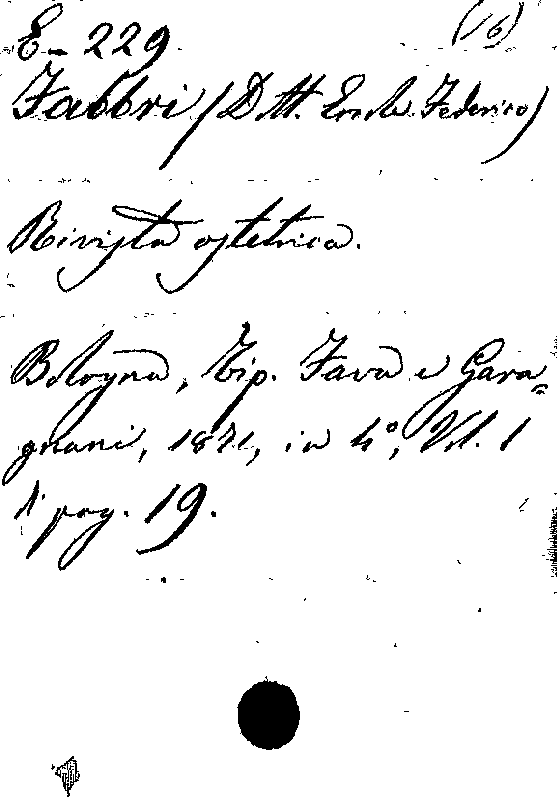 E-229 (16)
Fabbri (Dtt. Ercole Federico)
Rivista ostetrica.
Bologna, Tip. Fava e Gara=
gnani, 1871, in 4°, Vol. 1
di pag. 19.